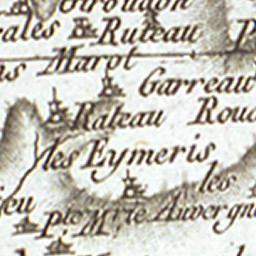 Giroudon
Ruteau
Marot
Garreau
Rateau
les Eymeris
les
pte. Mtrie Auvergn